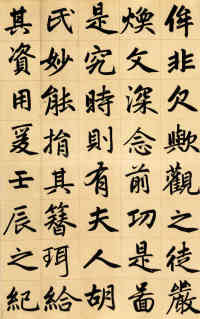 侔非久歟觀之徒嚴
煥文深念前功是啚
是究時則有夫人胡
氏妙能捐其簪珥給
其資用爰壬辰之紀